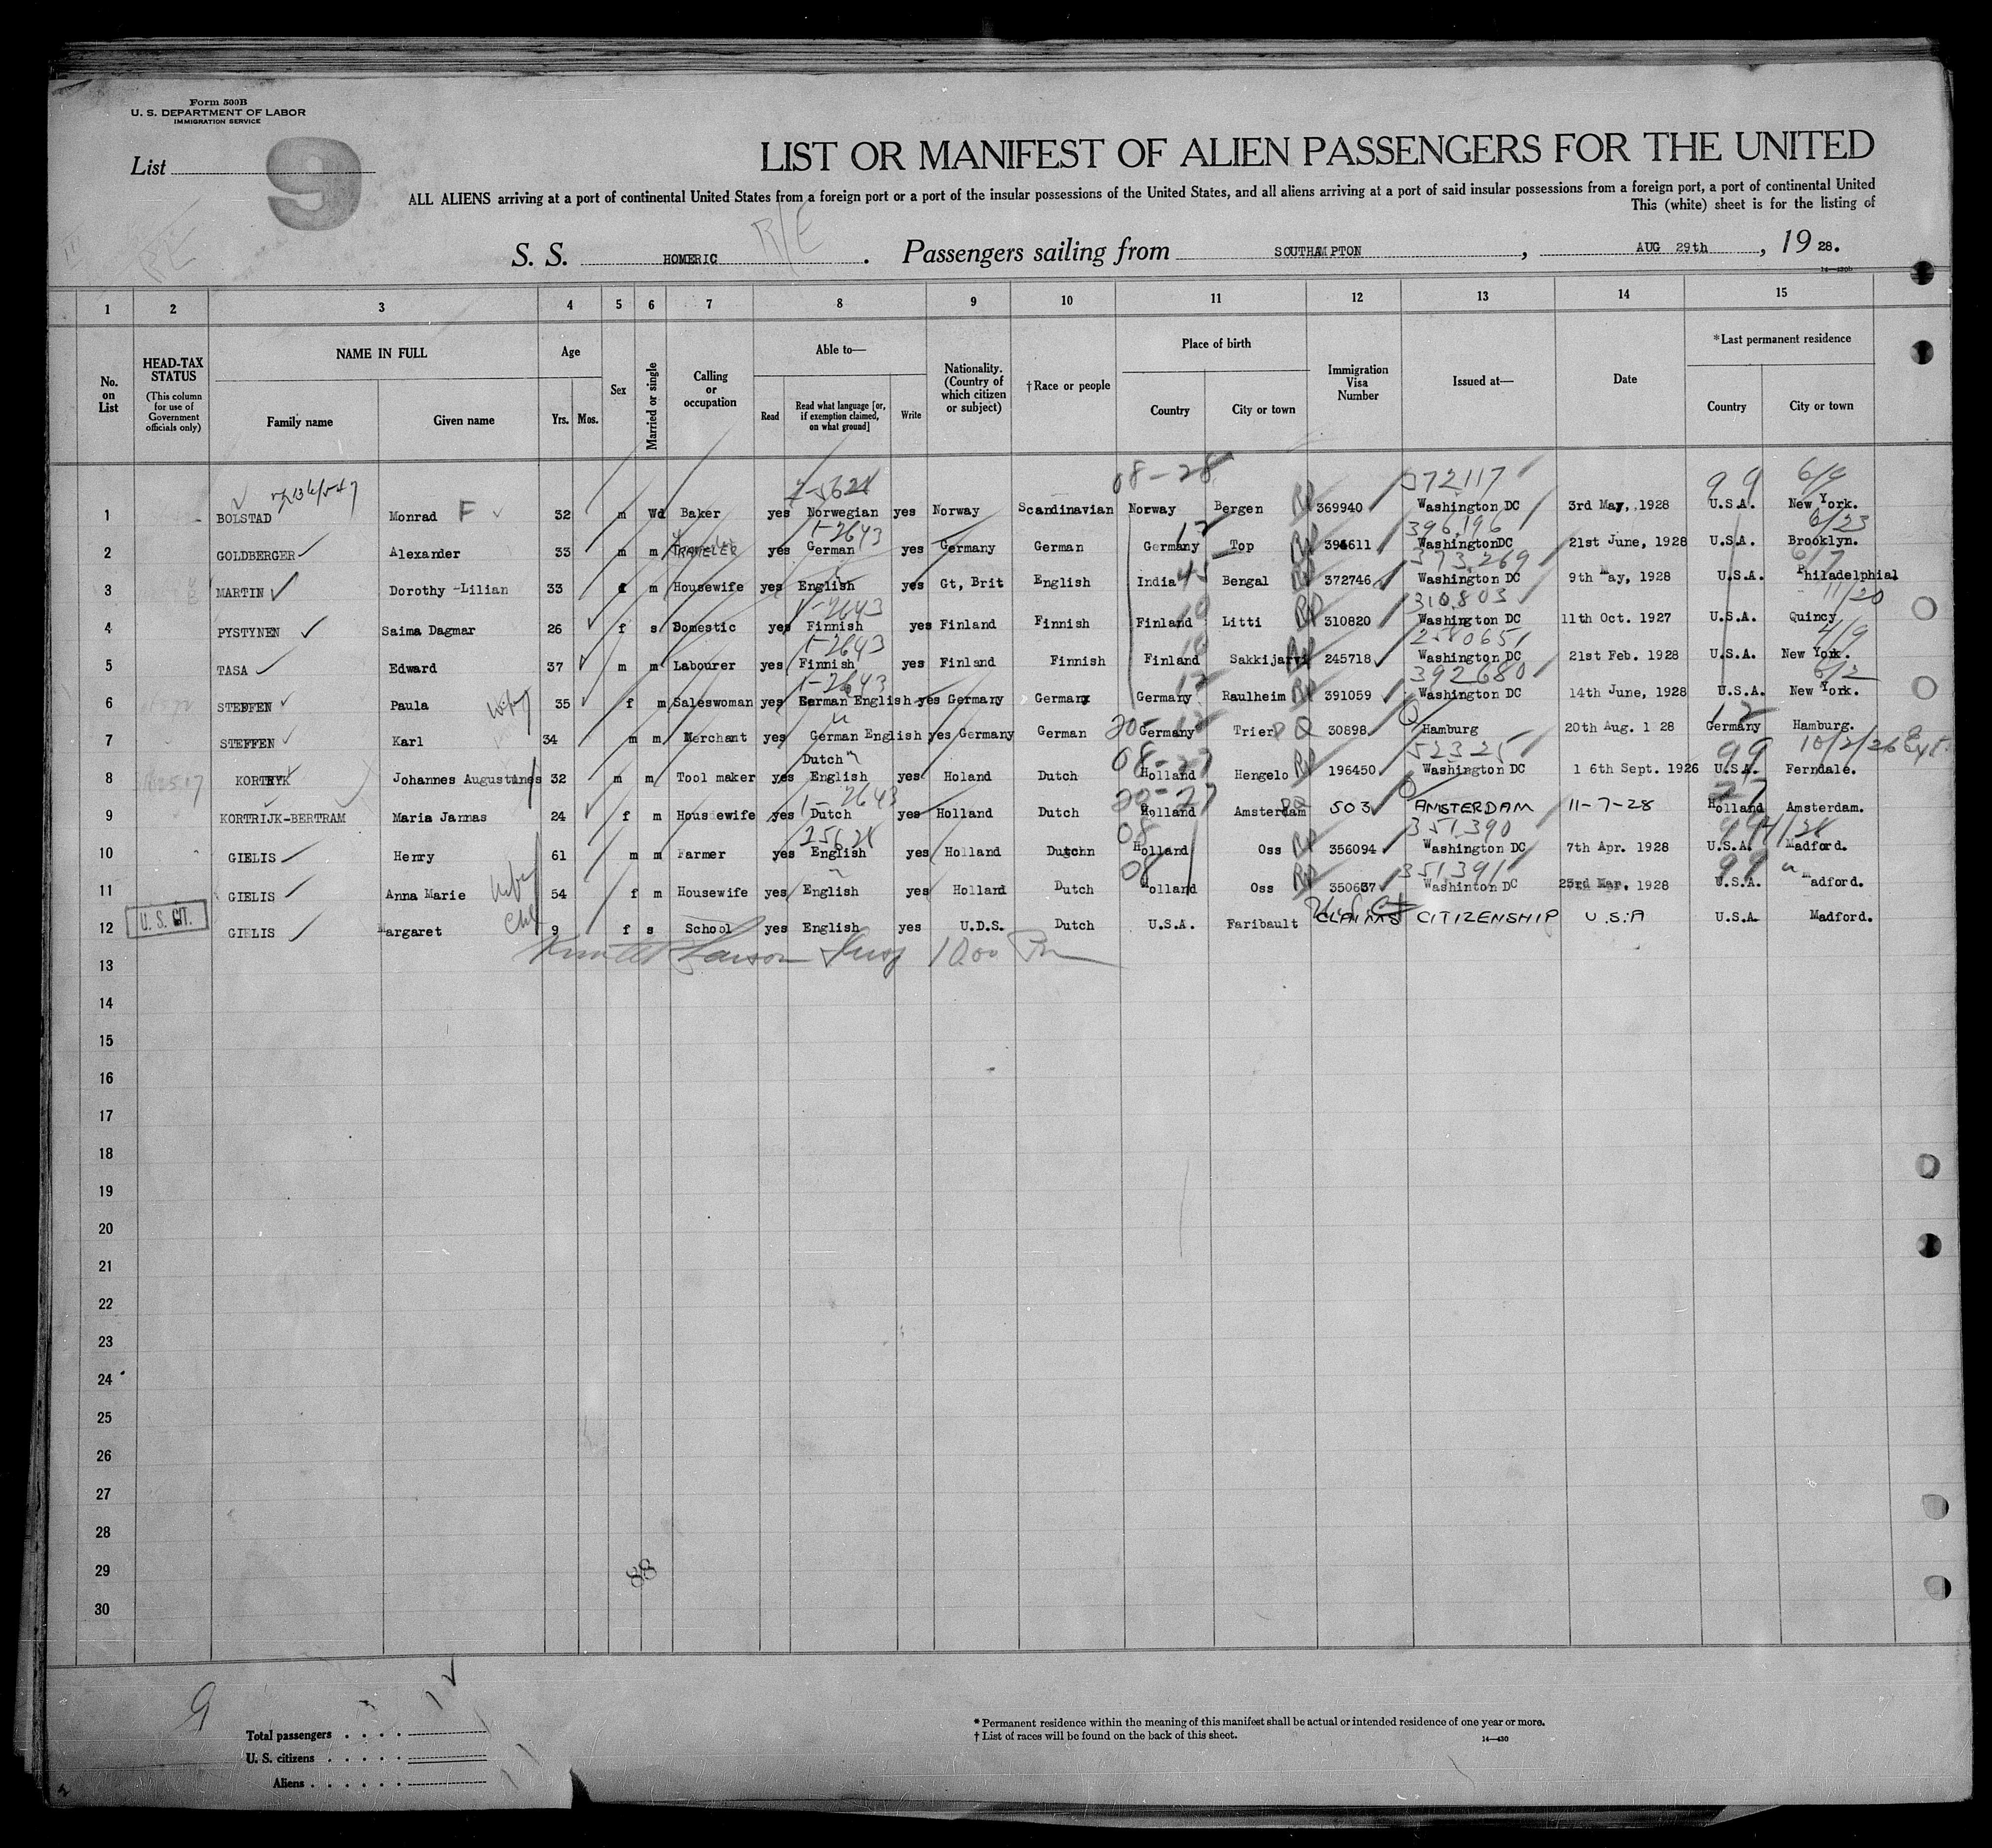 Form 500B
U. S. DEPARTMENT OF LABOR
IMMIGRATION SERVICE
List 9
LIST OR MANIFEST OF ALIEN PASSENGERS FOR THE UNITED
ALL ALIENS arriving at a port of continental United States from a foreign port or a port of the insular possessions of the United States, and all aliens arriving at a port of said insular possessions from a foreign port, a port of continental United
This (white) sheet is for the listing of
R/E
S. S. HOMERIC . Passengers sailing from SOUTHAMPTON , AUG 29th , 19 28.
14—430b
1 2 3 4 5 6 7 8 9 10 11 12 13 14 15
No. on List
HEAD-TAX STATUS
(This column for use of Government officials only)
NAME IN FULL
Family name Given name
Age
Yrs. Mos.
Sex
Married or single
Calling or occupation
Able to—
Read Read what language [or, if exemption claimed, on what ground] Write
Nationality. (Country of which citizen or subject)
† Race or people
Place of birth
Country City or town
Immigration Visa Number
Issued at—
Date
* Last permanent residence
Country City or town
08-28 372117 99 6/9
1 BOLSTAD Monrad F 32 m Wd Baker yes Norwegian yes Norway Scandinavian Norway Bergen 369940 Washington DC 3rd May, 1928 U.S.A. New York.
1-2643 12 396196 6/23
2 GOLDBERGER Alexander 33 m m TRAVELER yes German yes Germany German Germany Top 394611 WashingtonDC 21st June, 1928 U.S.A. Brooklyn.
45 373,269 6/7
3 MARTIN Dorothy -Lilian 33 f m Housewife yes English yes Gt, Brit English India Bengal 372746 Washington DC 9th May, 1928 U.S.A. Philadelphia
1-2643 310803 11/20
4 PYSTYNEN Saima Dagmar 26 f s Domestic yes Finnish yes Finland Finnish Finland Litti 310820 Washington DC 11th Oct. 1927 U.S.A. Quincy
1-2643 4/9
5 TASA Edward 37 m m Labourer yes Finnish yes Finland Finnish Finland Sakkijarvi 245718 Washington DC 21st Feb. 1928 U.S.A. New York.
1-2643 12 392680 6/2
6 STEFFEN Paula wife 35 f m Saleswoman yes German English yes Germany Germany Germany Raulheim 391059 Washington DC 14th June, 1928 U.S.A. New York.
12
7 STEFFEN Karl 34 m m Merchant yes German English yes Germany German Germany Trier 30898 Hamburg 20th Aug. 1 28 Germany Hamburg.
Dutch 08-27 52325 99 10/2/26
8 KORTRYK Johannes Augustines 32 m m Tool maker yes English yes Holand Dutch Holland Hengelo 196450 Washington DC 1 6th Sept. 1926 U.S.A. Ferndale.
1-2643 20-27 27
9 KORTRIJK-BERTRAM Maria Jannas 24 f m Housewife yes Dutch yes Holland Dutch Holland Amsterdam 503 AMSTERDAM 11-7-28 Holland Amsterdam.
25621 08 351390
10 GIELIS Henry 61 m m Farmer yes English yes Holland Dutchn Holland Oss 356094 Washington DC 7th Apr. 1928 U.S.A. Madford.
08 351,391 99
11 GIELIS Anna Marie wife 54 f m Housewife yes English yes Holland Dutch Holland Oss 350637 Washinton DC 23rd Mar. 1928 U.S.A. Madford.
12 U. S. CIT. GIELIS Margaret Chd 9 f s School yes English yes U.D.S. Dutch U.S.A. Faribault CLAIMS CITIZENSHIP U.S.A U.S.A. Madford.
13
14
15
16
17
18
19
20
21
22
23
24
25
26
27
28
29
88
30
9
Total passengers . . . .
U. S. citizens . . . . .
Aliens . . . . . .
* Permanent residence within the meaning of this manifest shall be actual or intended residence of one year or more.
† List of races will be found on the back of this sheet.
14—430